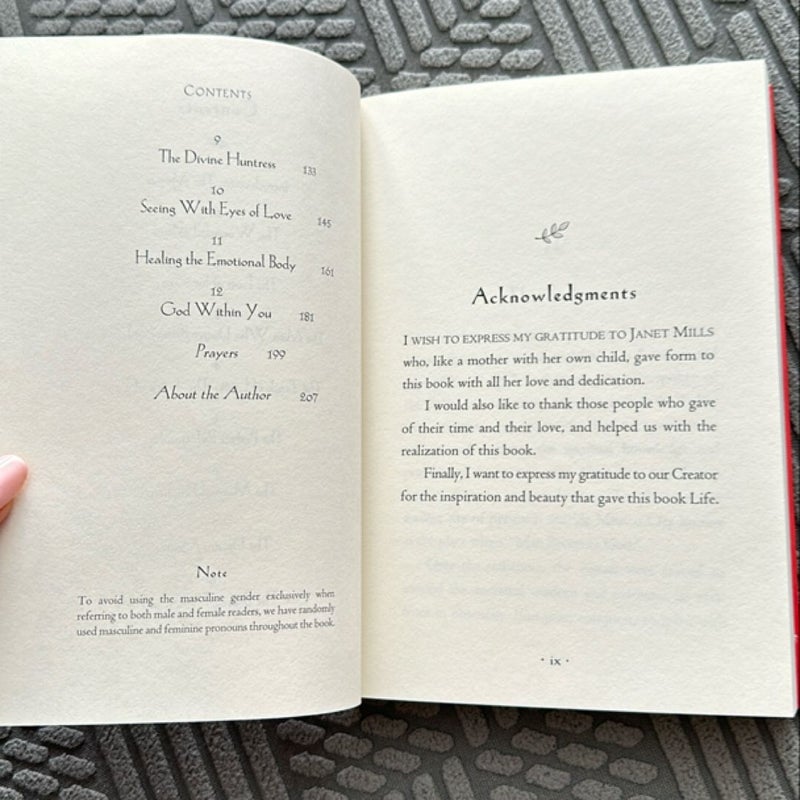 CONTENTS
9
The Divine Huntress 133
10
Seeing With Eyes of Love 145
11
Healing the Emotional Body 161
12
God Within You 181
Prayers 199
About the Author 207
Note
To avoid using the masculine gender exclusively when
referring to both male and female readers, we have randomly
used masculine and feminine pronouns throughout the book.
Acknowledgments
I WISH TO EXPRESS MY GRATITUDE TO JANET MILLS
who, like a mother with her own child, gave form to
this book with all her love and dedication.
I would also like to thank those people who gave
of their time and their love, and helped us with the
realization of this book.
Finally, I want to express my gratitude to our Creator
for the inspiration and beauty that gave this book Life.
· ix ·